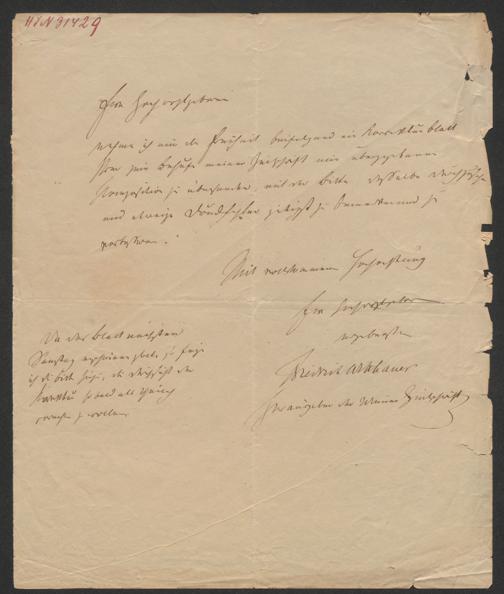 H.I.N. 31429
Euer Hochwohlgeboren
nehme ich mir die Freiheit beifolgend ein Korrekturblatt
Ihrer zum Behufe meiner Zeitschrift mir übergebenen
Komposition zu übersenden, mit der Bitte dasselbe durchzusehen
und etwaige Druckfehler gefälligst zu bemerken und zu
verbessern.
Mit vollkommener Hochachtung
Euer Hochwohlgeboren
ergebenster
Friedrich Witthauer
Herausgeber der Wiener Zeitschrift
Da das Blatt nächsten
Samstag erscheinen soll, so füge
ich die Bitte hinzu, die Durchsicht der
Korrektur so bald als thunlich
vornehmen zu wollen